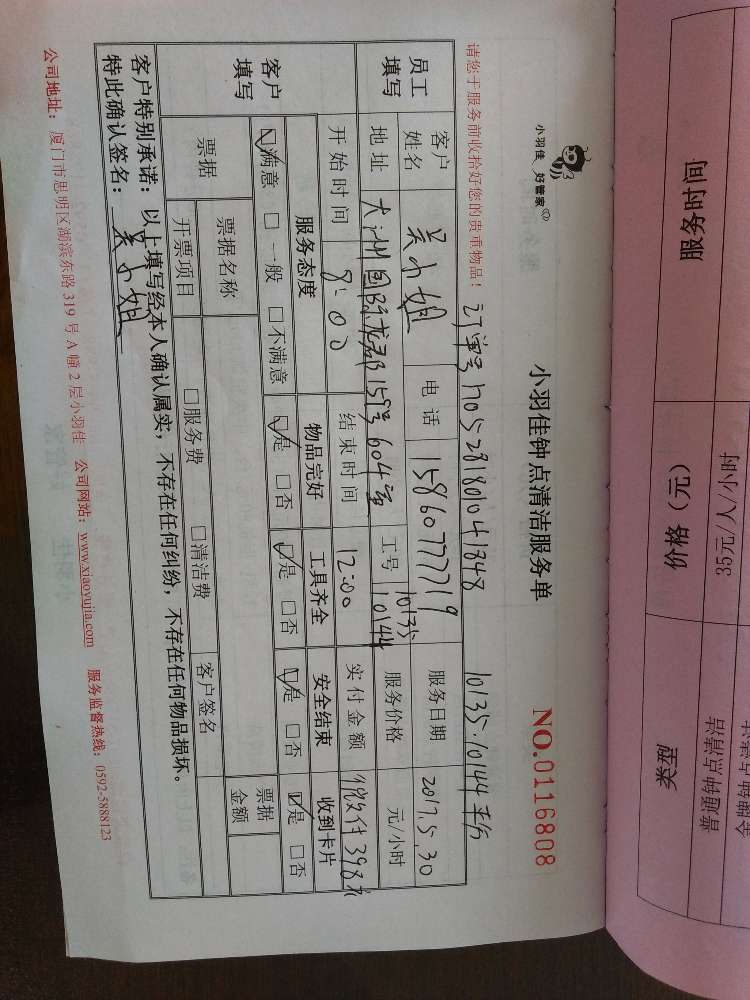 小羽佳 好管家
小羽佳钟点清洁服务单
NO.0116808
请您于服务前收拾好您的贵重物品！ 订单号1705281801041348 10135.10144平分
员工填写
客户姓名 吴小姐 电话 15860777719 服务日期 2017.5.30
地址 大洲国际龙郡159号604室 工号 10135 10144 服务价格 元/小时
开始时间 8:00 结束时间 12:00 实付金额 微付398元
客户填写
服务态度 物品完好 工具齐全 安全结束 收到卡片
☑满意 □一般 □不满意 ☑是 □否 ☑是 □否 ☑是 □否 ☑是 □否
票据 票据名称 票据金额
开票项目 □服务费 □清洁费 客户签名
客户特别承诺：以上填写经本人确认属实，不存在任何纠纷，不存在任何物品损坏。
特此确认签名：吴小姐
公司地址：厦门市思明区湖滨东路319号A幢2层小羽佳 公司网站：www.xiaoyujia.com 服务监督热线：0592-5888123
服务时间
价格（元） 35元/人/小时
类型 普通钟点清洁
金牌钟点清洁